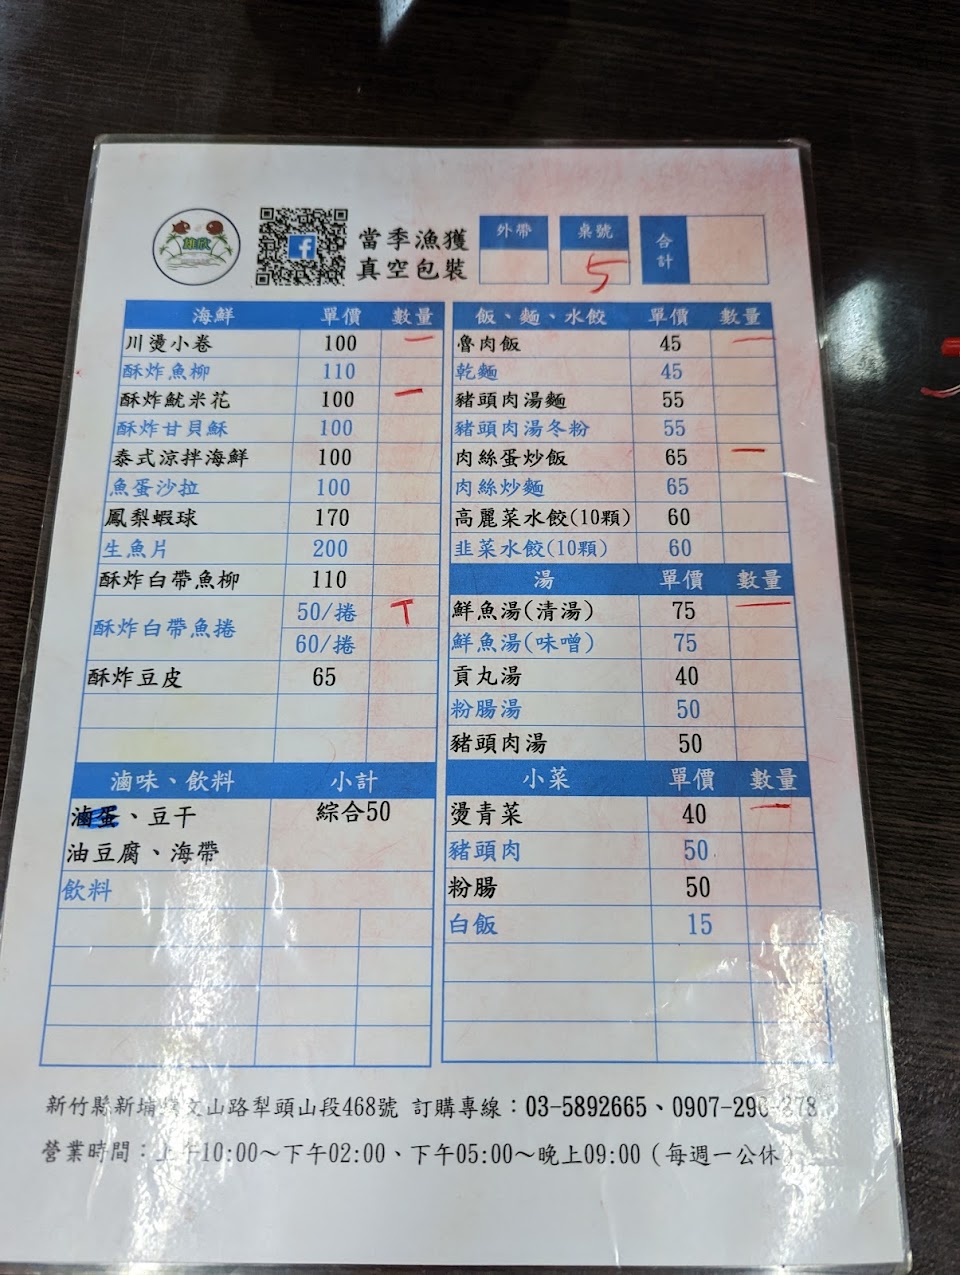 雄欣
當季漁獲
真空包裝
外帶
桌號
5
合計
海鮮 單價 數量
川燙小卷 100 一
酥炸魚柳 110
酥炸魷米花 100 一
酥炸甘貝酥 100
泰式涼拌海鮮 100
魚蛋沙拉 100
鳳梨蝦球 170
生魚片 200
酥炸白帶魚柳 110
酥炸白帶魚捲 50/捲 T
60/捲
酥炸豆皮 65
滷味、飲料 小計
滷蛋、豆干 綜合50
油豆腐、海帶
飲料
飯、麵、水餃 單價 數量
魯肉飯 45 一
乾麵 45
豬頭肉湯麵 55
豬頭肉湯冬粉 55
肉絲蛋炒飯 65 一
肉絲炒麵 65
高麗菜水餃(10顆) 60
韭菜水餃(10顆) 60
湯 單價 數量
鮮魚湯(清湯) 75 一
鮮魚湯(味噌) 75
貢丸湯 40
粉腸湯 50
豬頭肉湯 50
小菜 單價 數量
燙青菜 40 一
豬頭肉 50
粉腸 50
白飯 15
新竹縣新埔 文山路犁頭山段468號 訂購專線：03-5892665、0907-29
營業時間：上午10:00～下午02:00、下午05:00～晚上09:00（每週一公休）